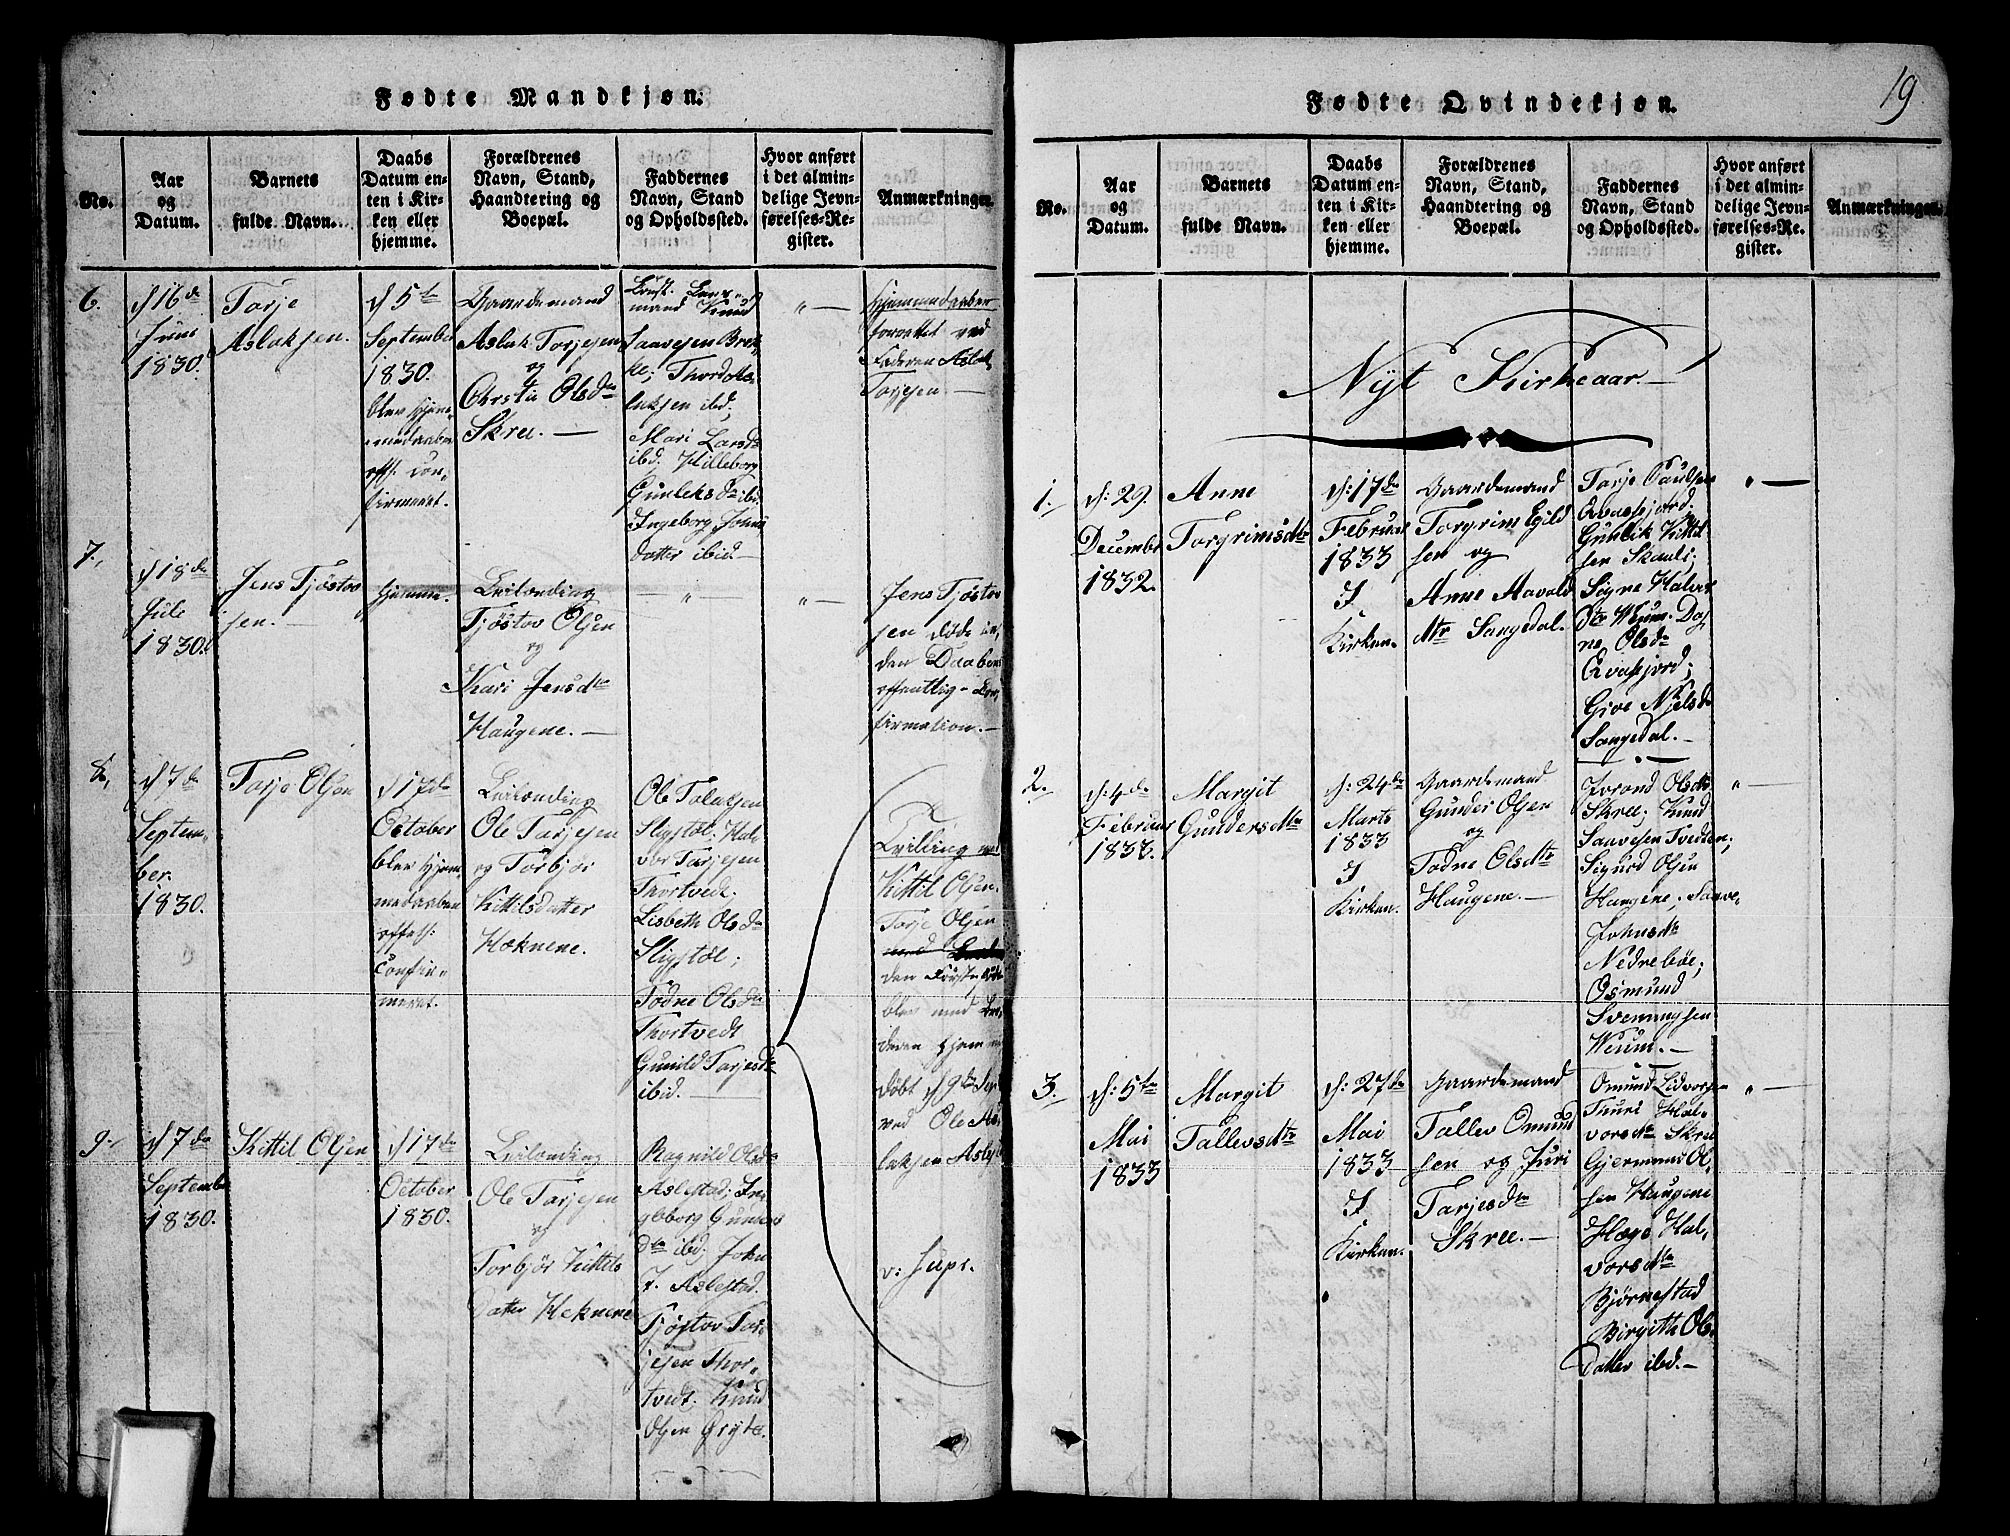 Fødte Mandkjøn.
No.
Aar
og
Datum.
Barnets
fulde Navn.
Daabs
Datum en-
ten i Kir-
ken eller
hjemme.
Forældrenes
Navn, Stand,
Haandtering og
Boepæl.
Faddernes
Navn, Stand
og Opholdssted.
Hvor anført
i det almin-
delige Jevn-
førelses-Re-
gister.
Anmærkninger.
6.
d 16de
Juni
1830.
Torje
Aslaksen.
d 5te
September
1830.
blev hjem-
medaaben
offt. con-
firmeret.
Gaardemand
Aslak Torjesen
og
Christi Olsdr
Skree. —
mand Knud
Saavesen Brek-
ke; Thord As-
laksen ibd;
Mari Larsdr
ibd; Hilleborg
Gunleksdr ibd;
Ingeborg Johns
datter ibid —
" —
Hjemmedaaben
forrettet ved
Faderen Aslak
Torjesen. —
7.
d 18de
Juli
1830.
Jens Tjøstov
sen. —
hjemme.
Tjøstov Olsen
og
Kari Jensdtr
Haugene. —
— " —
" —
Jens Tjøstov
sen døde in-
den Daabens
offentlig - Con-
firmation. —
8.
d 7de
Septem-
ber.
1830.
Torje Olsen
d 17de
October
blev hjem
medaaben
offeth:
confir-
meret.
Ole Torjesen
og Torbjør
Kittilsdatter
Høknene.
Ole Tolaksen
Sligstøl; Hal-
vor Torjesen
Thortvedt;
Lisbeth Olsdr
Sligstøl;
Todne Olsdr
Thortvedt
Gunild Torjesdr
ibid. —
Tvilling med
Kittil Olsen.
Torje Olsen
den første fødte
blev med Bro-
deren hjemme
døbt d 9de Sep
ved Ole As-
laksen
9.
d 7de
September
1830.
Kittil Olsen
d 17de
October
1830.
Ole Torjesen
og
Torbjør Kittils
datter Høknene
Ragnild Olsdr
Aslestad; In-
geborg Gunders
dtr ibid; John
T. Aslestad.
Tjøstov Tor-
jesen Thor-
tvedt. Knud
Olsen
v: supr.
Fødte Qvindekjøn.
19
No.
Aar
og
Datum.
Barnets
fulde Navn.
Daabs
Datum en-
ten i Kir-
ken eller
hjemme.
Forældrenes
Navn, Stand,
Haandtering og
Boepæl.
Faddernes
Navn, Stand
og Opholdssted.
Hvor anført
i det almin-
delige Jevn-
førelses-Re-
gister.
Anmærkninger.
Nyt Kirkeaar. —
1.
d: 29.
Decembr
1832.
Anne
Torgrimsdtr
d: 17de
Februar
1833
I
Kirken.
Gaardemand
Torgrim Egild
sen og
Anne Aavald
dtr Sangedal.
Torje Paulsen
Qvasfjord;
Gunlik Kittil
sen Skauli;
Signe Halvor
dtr Weum. Dag
ne Olsdr
Qvasfjord;
Give Nielsdr
Sangedal. —
" —
2.
d: 4de
Februar
1833.
Margit
Gundersdtr
d: 24de
Marts
1833
I
Kirken.
Gaardemand
Gunder Olsen
og
Todne Olsdtr
Haugene. —
Jorond Olsdtr
Skree; Knud
Saavesen Tvedten;
Sigurd Olsen
Haugene; Saave
Johnsdtr
Nedrebøe;
Osmund
Svenningsen
Weum. —
" —
3.
d: 5te
Mai
1833
Margit
Tallevsdtr
d: 27de
Mai
1833
I
Kirken.
Gaardemand
Tallev Omund
sen og Juri
Tarjesdtr
Skree. —
Omund Lidvorsen
Tuuri Hal-
vorsdtr Skree
Gjermund Ol-
sen Haugene
Hæge Hal-
vorsdtr
Bjørnestad
Birgith Ols
datter ibd. —
" —